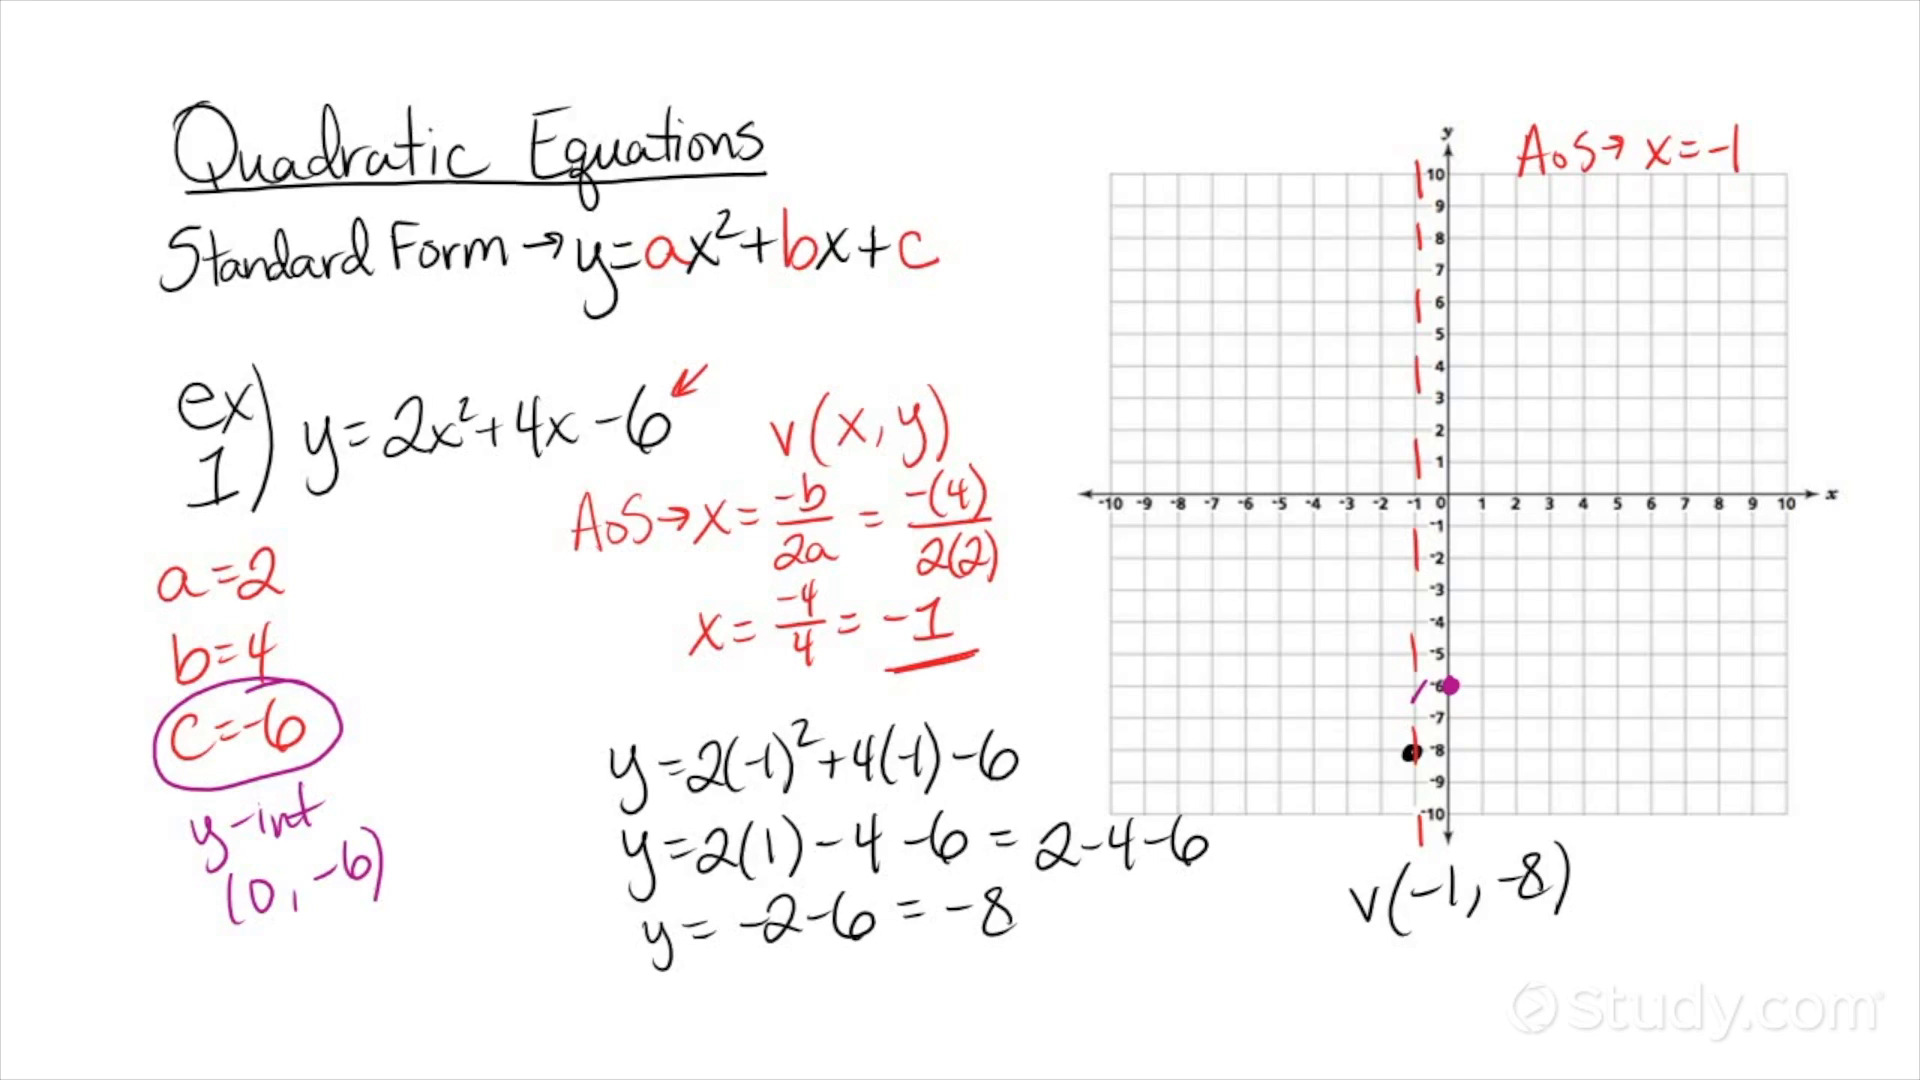 Quadratic Equations
Standard Form → y=ax²+bx+c
ex 1) y=2x²+4x-6
a=2
b=4
c=-6
y-int
(0,-6)
v(x,y)
AoS→ x= -b/2a = -(4)/2(2)
x= -4/4 = -1
y=2(-1)²+4(-1)-6
y=2(1)-4-6=2-4-6
y=-2-6=-8
AoS→ x=-1
y
10
9
8
7
6
5
4
3
2
1
-10 -9 -8 -7 -6 -5 -4 -3 -2 -1 0 1 2 3 4 5 6 7 8 9 10 x
-1
-2
-3
-4
-5
-6
-7
-8
-9
-10
v(-1,-8)
Study.com